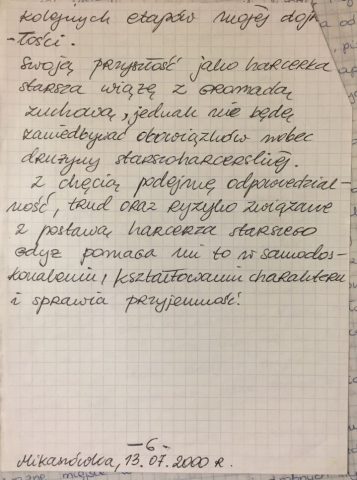 kolejnych etapów mojej dojrza
-łości.
Swoją przyszłość jako harcerka
starsza wiążę z gromadą
zuchową, jednak nie będę
zaniedbywać obowiązków wobec
drużyny starszoharcerskiej.
Z chęcią podejmę odpowiedzial-
ność, trud oraz ryzyko związane
z postawą harcerza starszego
gdyż pomaga mi to w samodos-
konaleniu, kształtowaniu charakteru
i sprawia przyjemność!
-6-
Mikanówka, 13.07.2000 r.